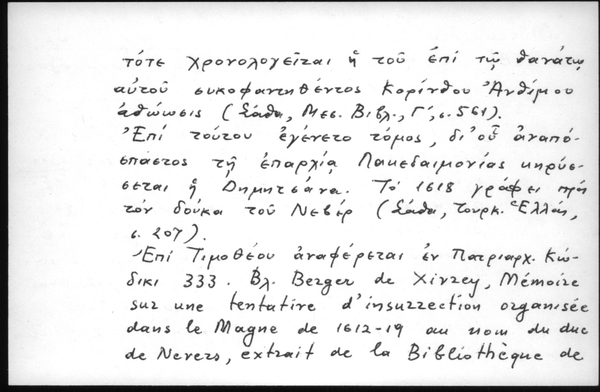 τότε χρονολογεῖται ἡ τοῦ ἐπὶ τῷ θανάτῳ
αὐτοῦ συκοφαντηθέντος Κορίνθου Ἀνθίμου
ἀθώωσις (Σάθα, Μεσ. Βιβλ., Γ', σ. 561).
Ἐπὶ τούτου ἐγένετο τόμος, δι' οὗ ἀναπό-
σπαστος τῇ ἐπαρχίᾳ Λακεδαιμονίας κηρύσ-
σεται ἡ Δημητσάνα. Τὸ 1618 γράφει πρὸς
τὸν δούκα τοῦ Νεβέρ (Σάθα, Τουρκ. Ἑλλάς,
σ. 207).
Ἐπὶ Τιμοθέου ἀναφέρεται ἐν Πατριαρχ. Κώ-
δικι 333. Βλ. Berger de Xivrey, Mémoire
sur une tentative d'insurrection organisée
dans le Magne de 1612-19 au nom du duc
de Nevers, extrait de la Bibliothèque de